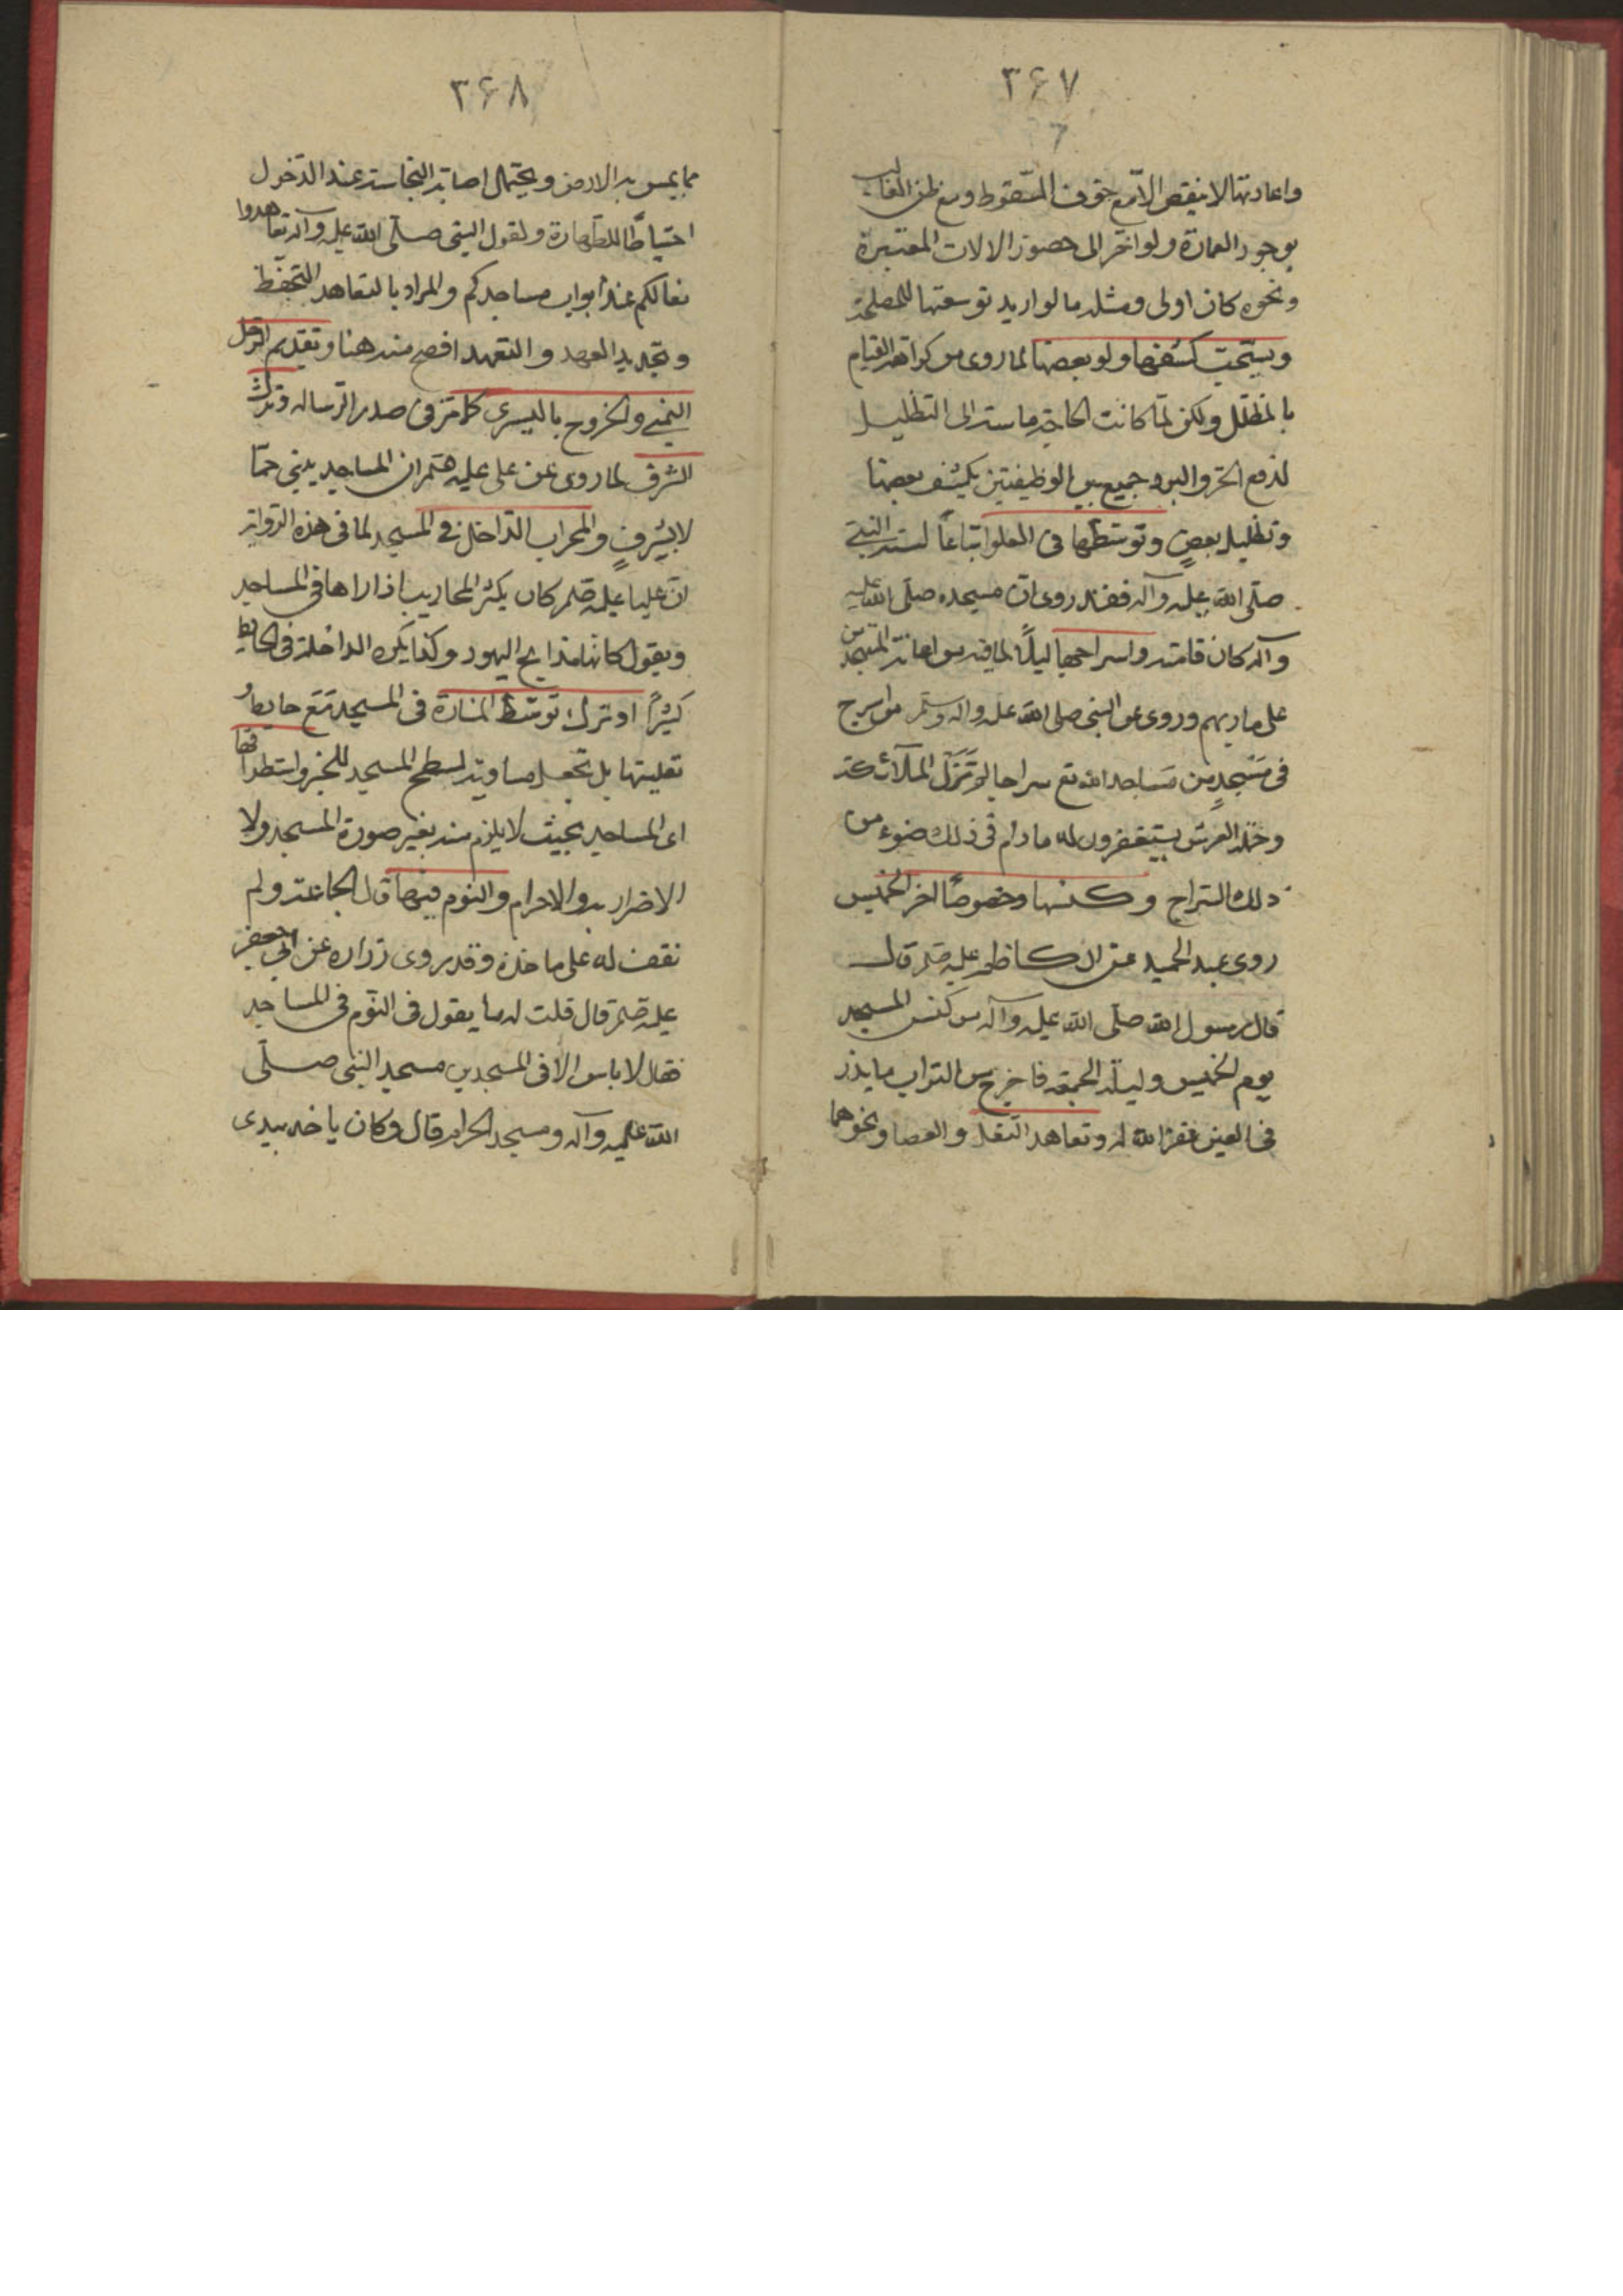 ۳۶۷
واعادتها لا ينقض الا مع خوف السقوط ومع ظن الغالب
بوجود العمارة ولو اخّر الى حضور الالات المعتبرة
ونحوه كان اولى ومثله ما لو اريد توسعتها للمصلحة
ويستحبّ كشفها ولو بعضها لما روى من كراهة القيام
بالمظلّل ولكن لمّا كانت الحاجة ماسة الى التظليل
لدفع الحرّ والبرد جمع بين الوظيفتين بكشف بعضها
وتظليل بعضٍ وتوسّطها فى العلو اتباعاً لسنة النبىّ
صلّى الله عليه وآله فقد روى انّ مسجده صلّى الله عليه
وآله كان قامة واسراجها ليلاً لما فيه من اعانة المتهجدين
على ماربهم وروى عن النبى صلى الله عليه واله وسلم من اسرج
فى مَسْجدٍ من مَساجد الله تع سراجا لم تَزَل الملآئكة
وحملة العرش يستغفرون له ما دام فى ذلك ضوء من
ذلك السّراج وكنسها وخصوصاً اخر الخميس
روى عبد الحميد عن الكاظم عليه قال
قال رسول الله صلّى الله عليه وآله من كنس المسجد
يوم الخميس وليلة الجمعة فاخرج من التراب ما يذر
فى العين غفر الله له وتعاهد النّعل والعصا ونحوهما
۳۶۸
مما يمس به الارض ويحتمل اصابة النجاسة عند الدّخول
احتياطًا للطهارة ولقول النبى صلّى الله عليه وآله تعاهدوا
نعالكم عند أبواب مساجدكم والمراد بالتعاهد التّحفّظ
وتجديد العهد والتعهد افصح منه هنا وتقديم الرّجل
اليمنى والخروج باليسرى كما مرّ فى صدر الرساله وترك
الشرف لما روى عن على عليه ان المساجد يبنى جمّا
لا يشرفٍ والمحراب الدّاخل فى المسجد لما فى هذه الرّواية
انّ عليا عليه كان يكسر المحاريب اذا راها فى المساجد
ويقول كانها مذابح اليهود وكذا يكره الداخلة فى الحايط
كثيرًا او ترك توسّط المنارة فى المسجد مع حايطه و
تعليتها بل تجعل مساوية لسطح المسجد للخبر واستطراقها
اى المساجد بحيث لا يلزم منه تغير صورة المسجد ولا
الاضرار به والاحرام والنوم فيها قاله الجماعة ولم
نقف له على ماخذ وقد روى زراره عن ابى جعفر
عليه قال قلت له ما يقول فى النّوم فى المساجد
فقال لا باس الا فى المسجدين مسجد النبى صلّى
الله عليه وآله ومسجد الحرام قال وكان ياخذ بيدى